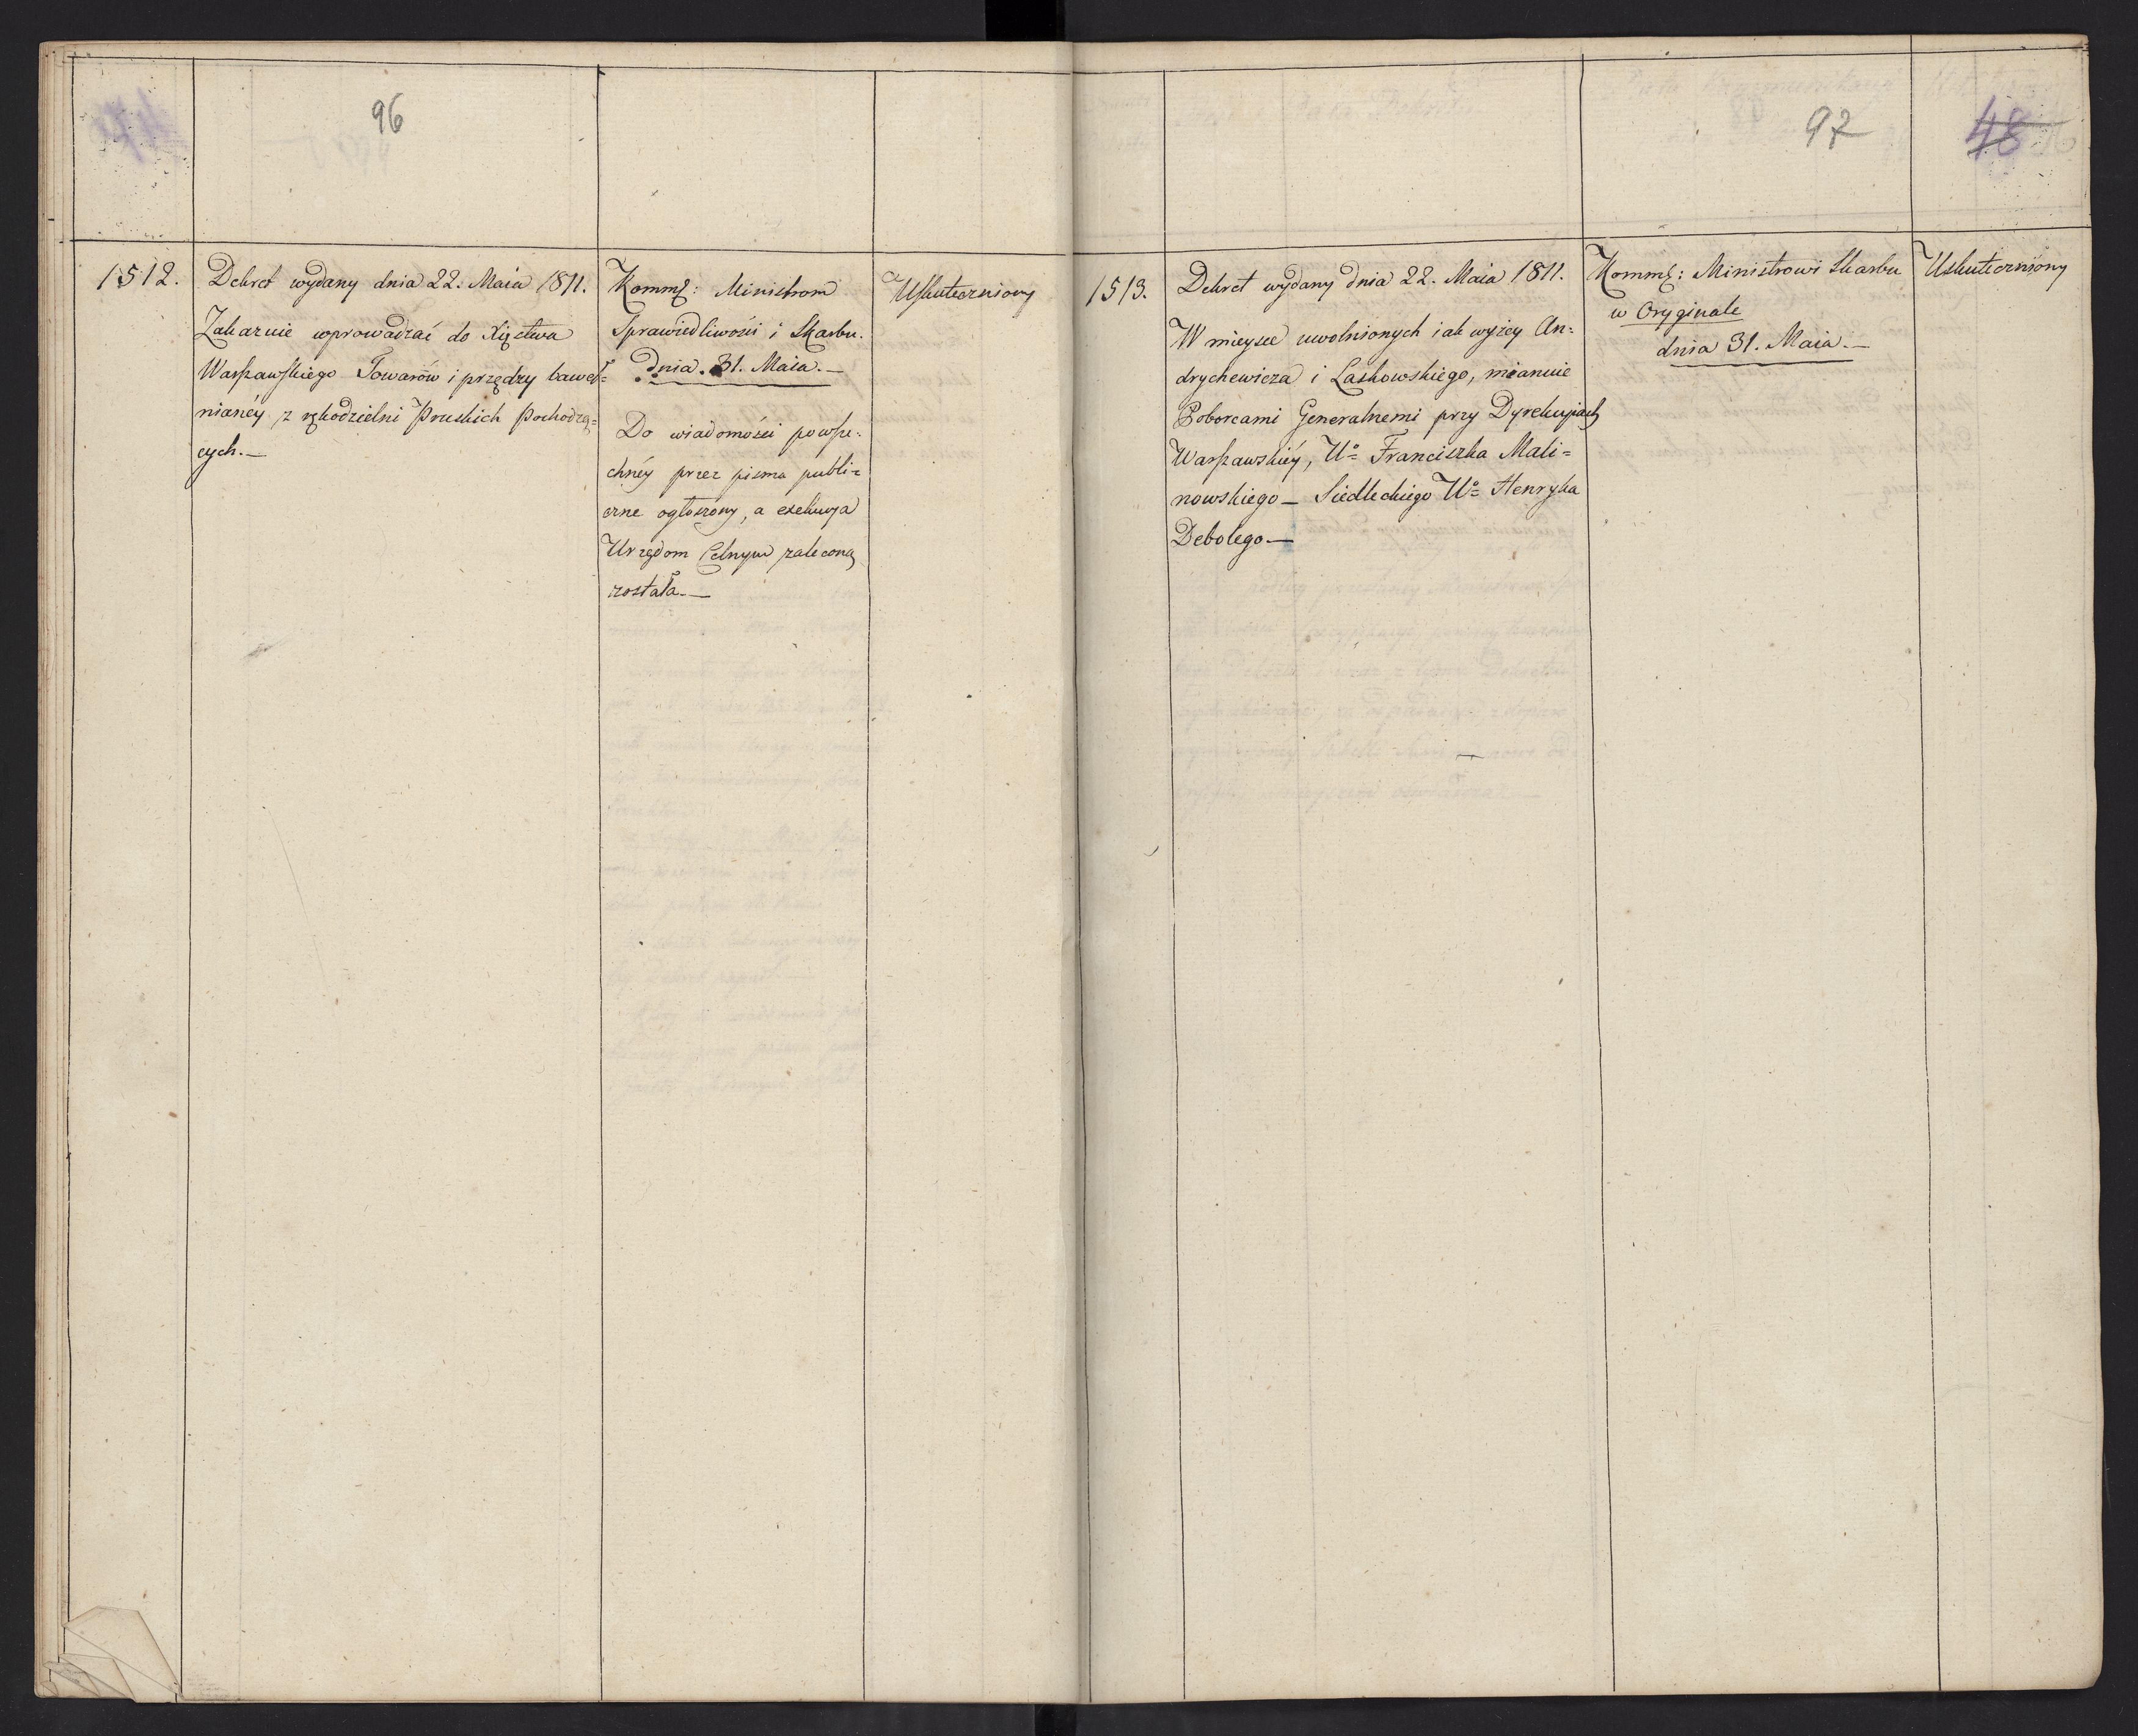 96
1512.
Dekret wydany dnia 22. Maia 1811.
Zakazuie wprowadzać do Xięstwa
Warszawskiego Towarów i przędzy baweł=
nianéy z rękodzielni Pruskich pochodzą=
cych.—
Kommṫ: Ministrom
Sprawiedliwości i Skarbu.
dnia. 31. Maia.—
Do wiadomości powsze-
chnéy przez pisma publi=
czne ogłoszony, a exekucya
Urzędom Celnym zaleconą
została.—
Uskuteczniony
97
48
1513.
Dekret wydany dnia 22. Maia 1811.
W mieysce uwolnionych iak wyżey An=
drychewicza i Laskowskiego, mianuie
Poborcami Generalnemi przy Dyrekcyiach
Warszawskiéy, Uo= Franciszka Mali=
nowskiego — Siedleckiego Uo= Henryka
Debolego —
Komm: Ministrowi Skarbu
w Oryginale
dnia 31. Maia.—
Uskuteczniony